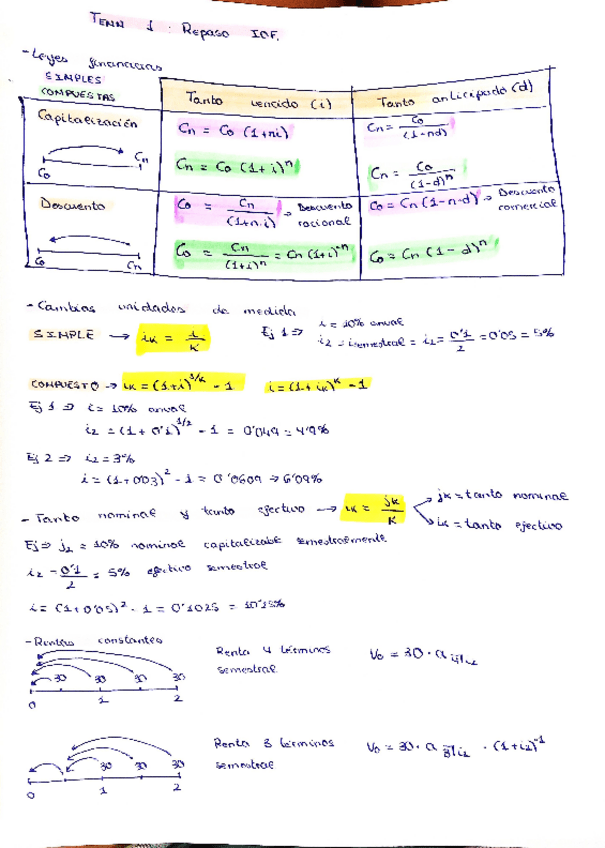 TEMA 1: Repaso IOF.
- Leyes financieras
SIMPLES
COMPUESTAS
Tanto vencido (i)
Tanto anticipado (d)
Capitalización
Co Cn
Cn = Co (1+ni)
Cn = Co / (1-nd)
Cn = Co (1+i)^n
Cn = Co / (1-d)^n
Descuento
Co Cn
Co = Cn / (1+n·i) → Descuento racional
Co = Cn (1-n·d) → Descuento comercial
Co = Cn / (1+i)^n = Cn (1+i)^-n
Co = Cn (1-d)^n
- Cambios unidades de medida
SIMPLE → iK = i / K
Ej 1 ⇒ i = 10% anual
i2 = isemestral = i2 = 0'1 / 2 = 0'05 = 5%
COMPUESTO → iK = (1+i)^1/K - 1 i = (1+iK)^K - 1
Ej 1 ⇒ i = 10% anual
i2 = (1+0'1)^1/2 - 1 = 0'049 = 4'9%
Ej 2 ⇒ i2 = 3%
i = (1+003)^2 - 1 = 0'0609 → 6'09%
- Tanto nominal y tanto efectivo → iK = jK / K
jK = tanto nominal
iK = tanto efectivo
Ej ⇒ j2 = 10% nominal capitalizable semestralmente
i2 = 0'1 / 2 = 5% efectivo semestral
i = (1+0'05)^2 - 1 = 0'1025 = 10'25%
- Rentas constantes
30 30 30 30
0 1 2
Renta 4 términos
semestral
Vo = 30 · a 4|i2
30 30 30
0 1 2
Renta 3 términos
semestral
Vo = 30 · a 3|i2 · (1+i2)^-1